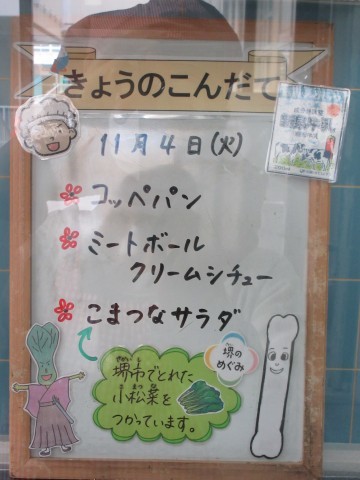 きょうのこんだて
11月4日(火)
コッペパン
ミートボール
クリームシチュー
こまつなサラダ
堺の
めぐみ
堺市でとれた
小松菜を
つかっています。